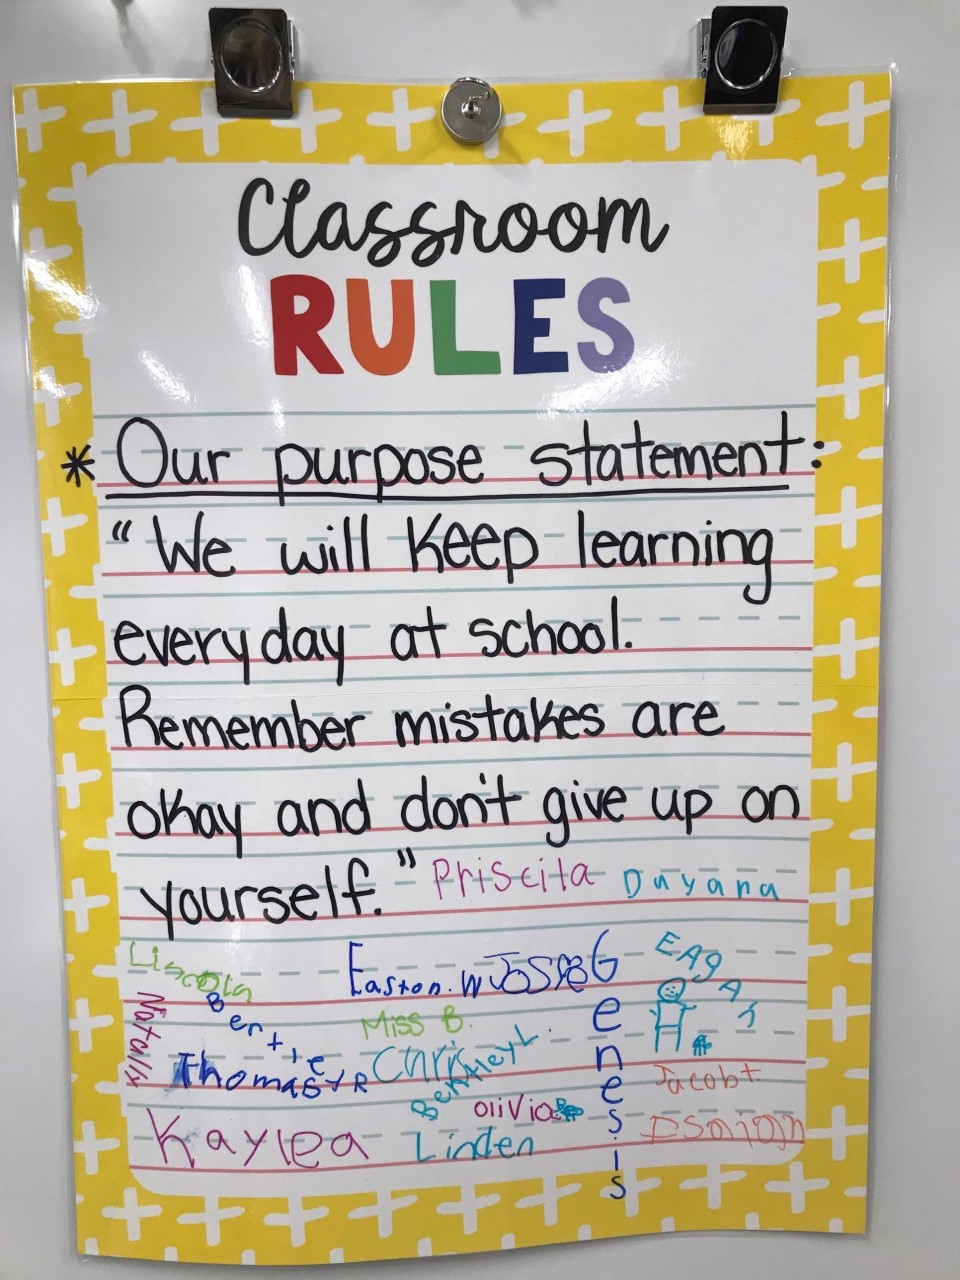 Classroom
RULES
* Our purpose statement:
"We will keep learning
everyday at school.
Remember mistakes are
okay and don't give up on
yourself."
Priscila Dayana
Lincoln
Easton.W
Genesis
Natally
Bertie
Miss B.
Thomas
Chris
Berkley L
Jacob t
olivia
Kaylea
Linden